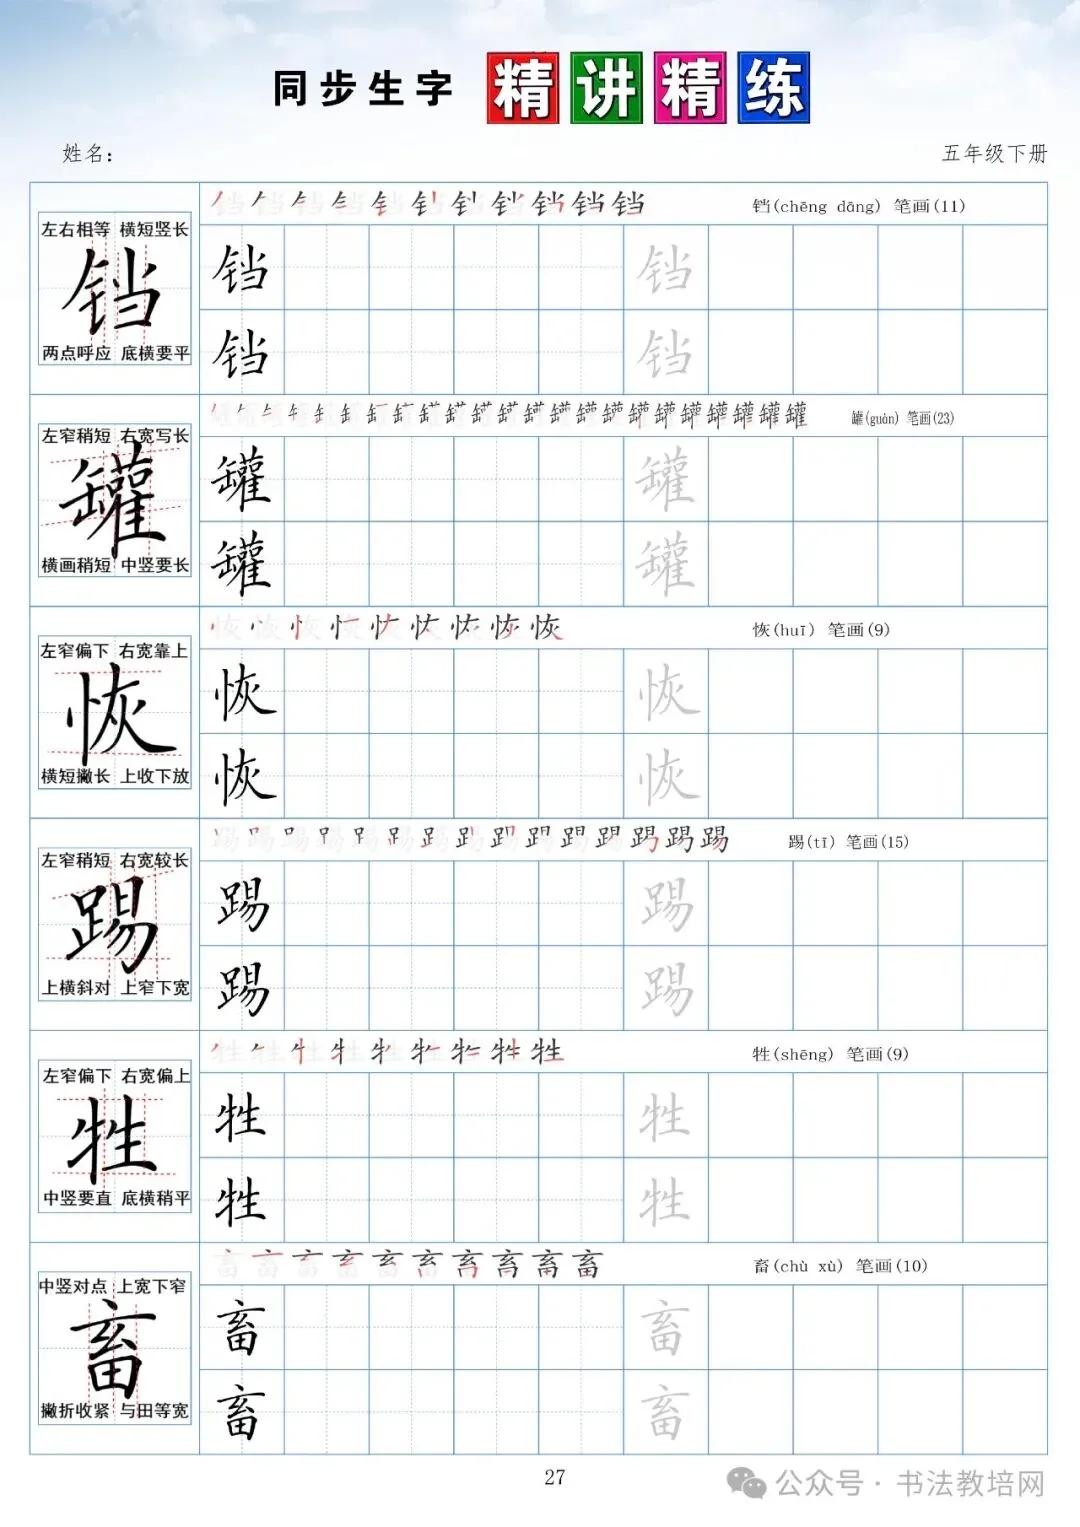 同步生字 精讲精练
姓名：
五年级下册
左右相等 横短竖长
铛
两点呼应 底横要平
铛(chēng dāng) 笔画(11)
铛 铛
铛 铛
左窄稍短 右宽写长
罐
横画稍短 中竖要长
罐(guàn) 笔画(23)
罐 罐
罐 罐
左窄偏下 右宽靠上
恢
横短撇长 上收下放
恢(huī) 笔画(9)
恢 恢
恢 恢
左窄稍短 右宽较长
踢
上横斜对 上窄下宽
踢(tī) 笔画(15)
踢 踢
踢 踢
左窄偏下 右宽偏上
牲
中竖要直 底横稍平
牲(shēng) 笔画(9)
牲 牲
牲 牲
中竖对点 上宽下窄
畜
撇折收紧 与田等宽
畜(chù xù) 笔画(10)
畜 畜
畜 畜
27
公众号·书法教培网